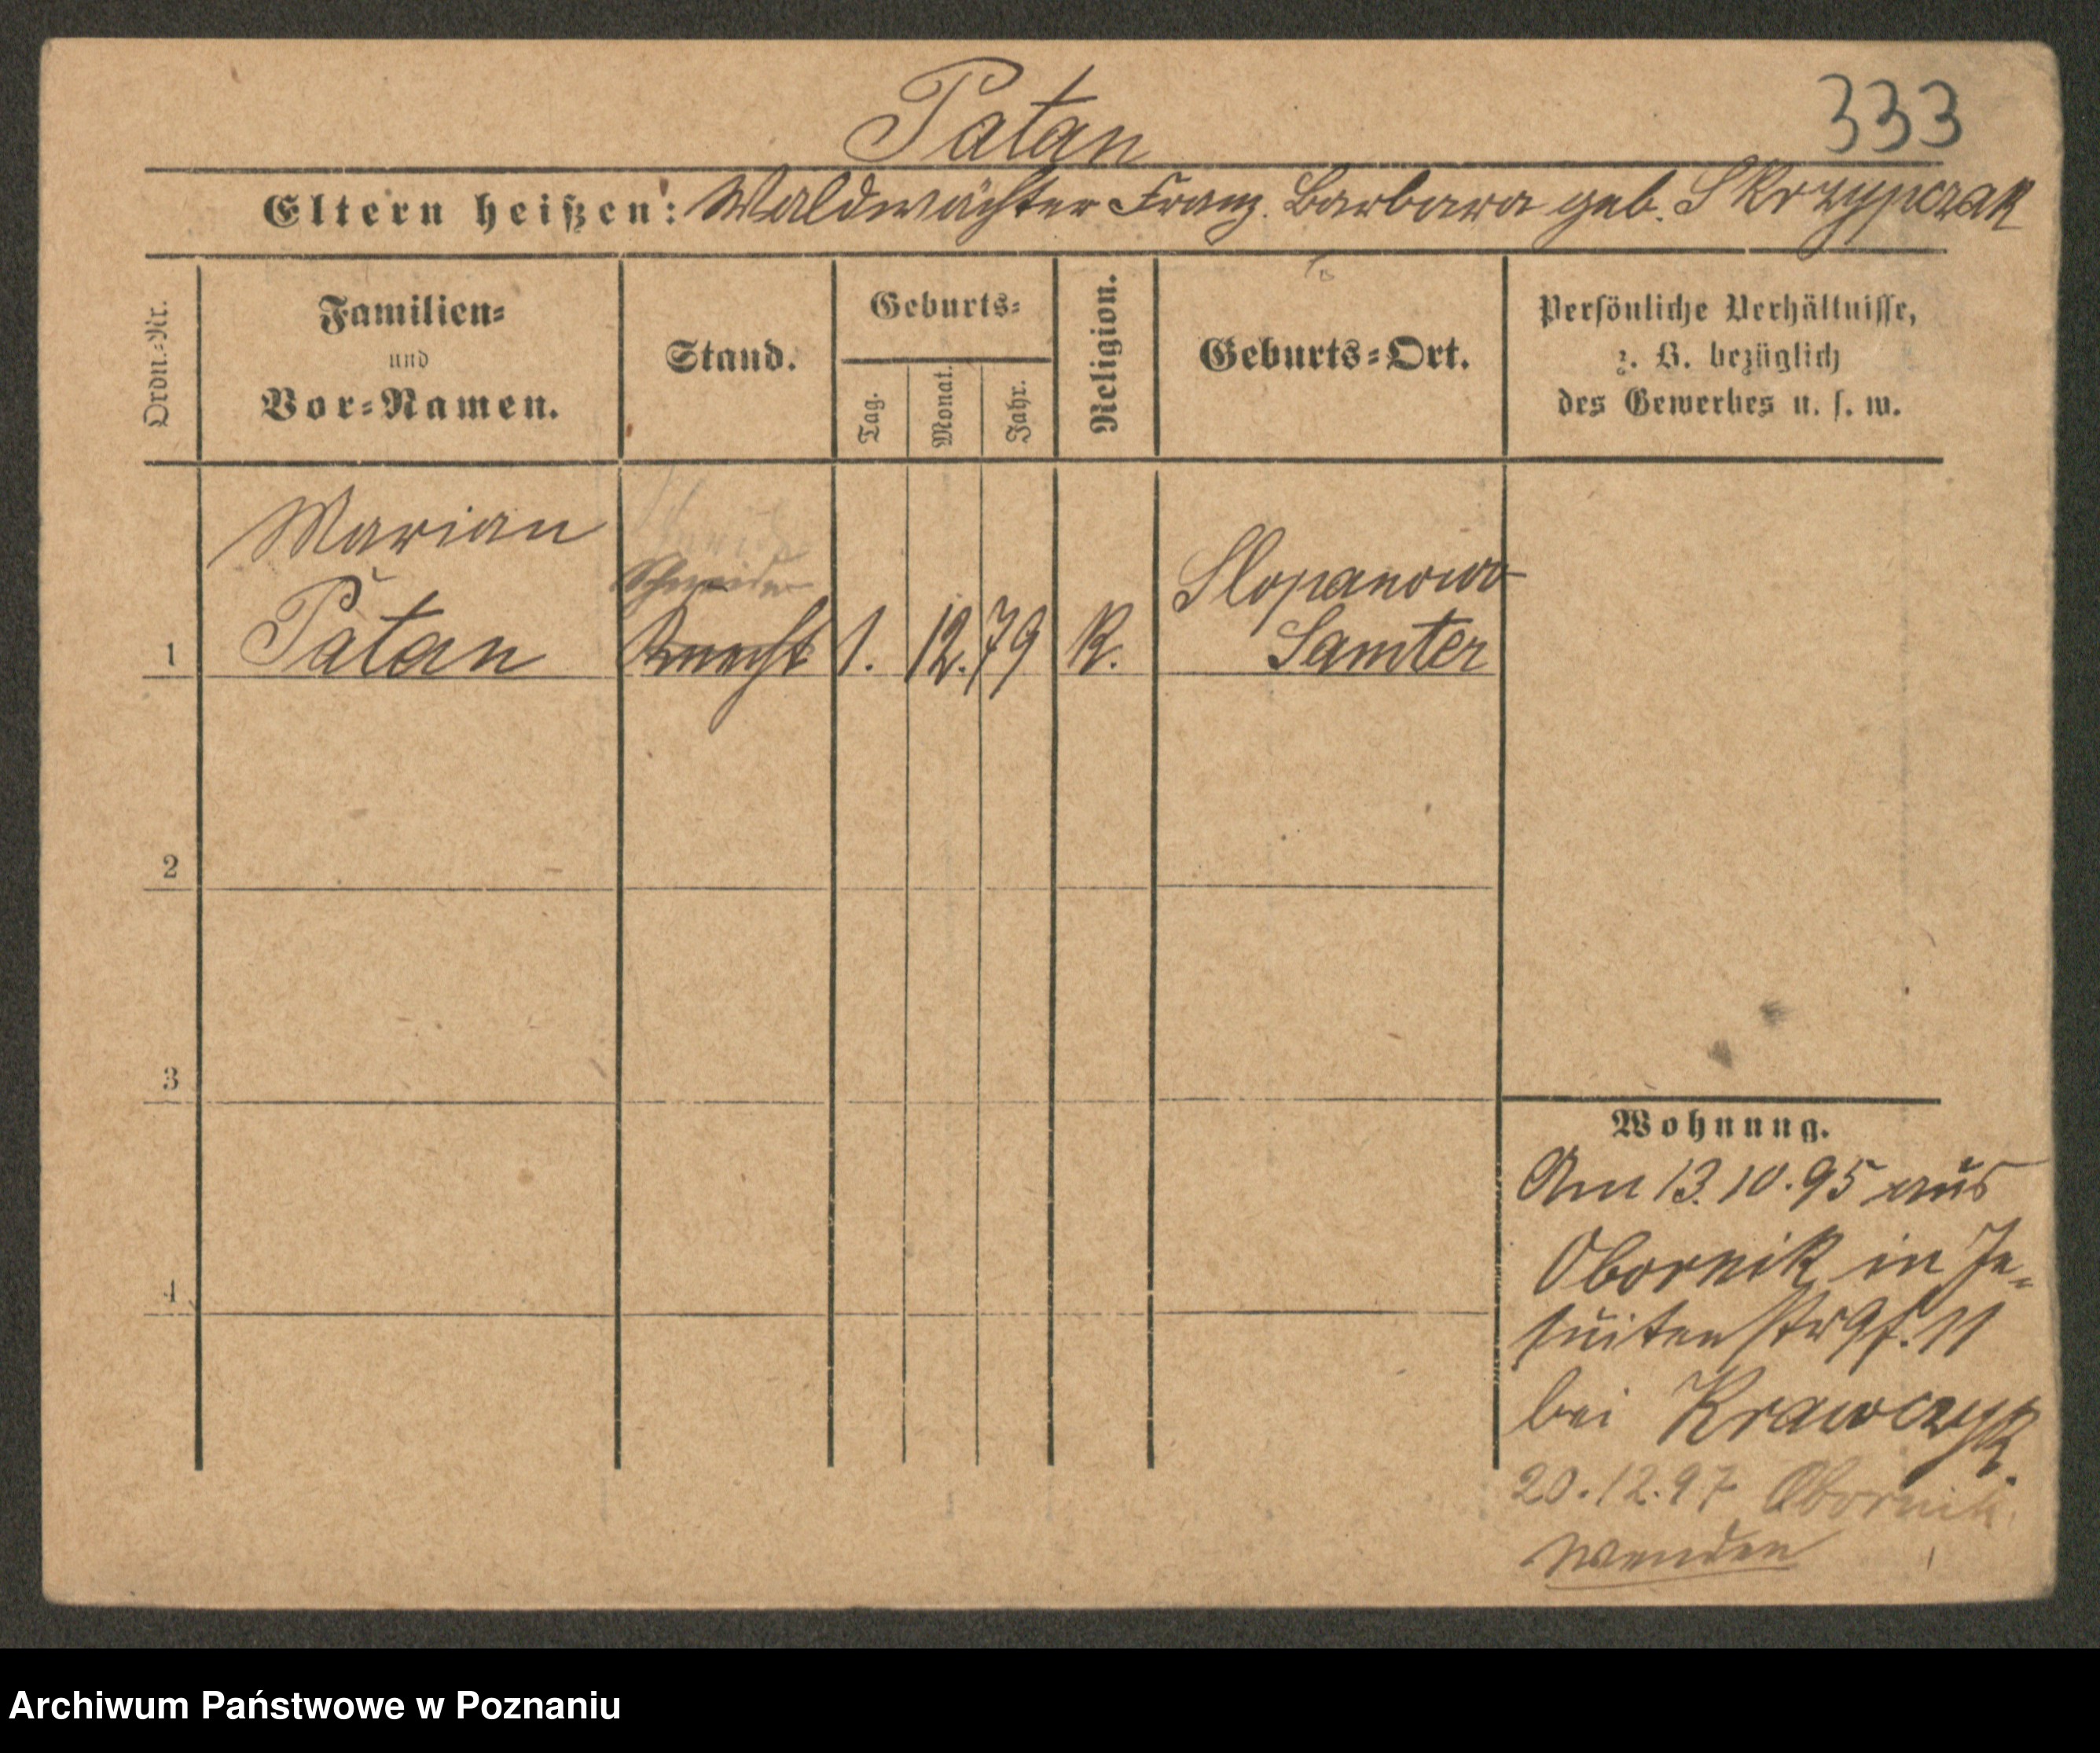 Patan
333
Eltern heißen: Waldwächter Franz. Barbara geb. Skrzypczak
Ordn.-Nr.
Familien-
und
Vor-Namen.
Stand.
Geburts-
Tag.
Monat.
Jahr.
Religion.
Geburts-Ort.
Persönliche Verhältnisse,
z. B. bezüglich
des Gewerbes u. s. w.
Marian
Schneider
Slopanowo
1 Patan Knecht 1. 12. 79 K. Samter
2
3
4
Wohnung.
Am 13.10.95 aus
Obornik in Je-
suitenstr 9/. 11
bei Krawczyk.
20.12.97 Obornik.
Wenden
Archiwum Państwowe w Poznaniu